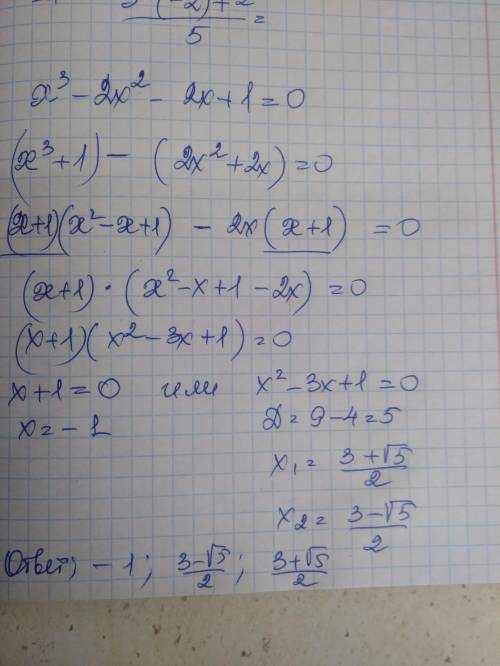 5
x³ - 2x² - 2x + 1 = 0
(x³ + 1) - (2x² + 2x) = 0
(x+1)(x² - x + 1) - 2x (x+1) = 0
(x+1) · (x² - x + 1 - 2x) = 0
(x+1)(x² - 3x + 1) = 0
x + 1 = 0 или x² - 3x + 1 = 0
x = - 1 D = 9 - 4 = 5
x₁ = (3 + √5)/2
x₂ = (3 - √5)/2
Ответ; - 1; (3-√5)/2; (3+√5)/2